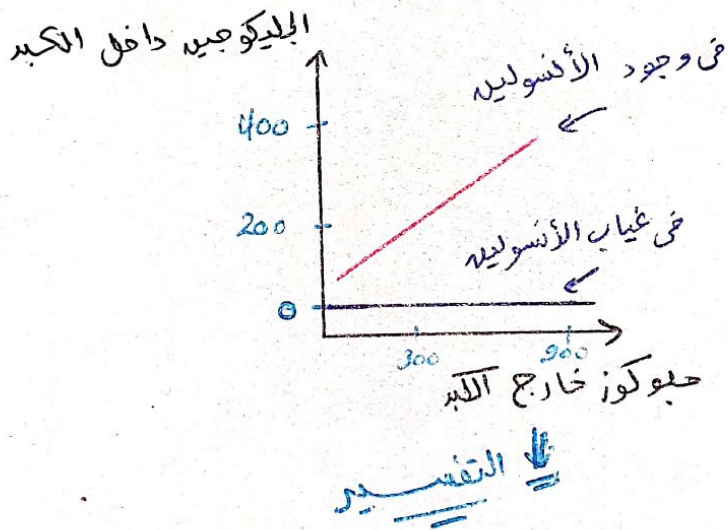 الجليكوجين داخل الكبد
فى وجود الألنسولين
400
200
فى غياب الأنسولين
0
300
900
جلوكوز خارج الكبد
التفسير